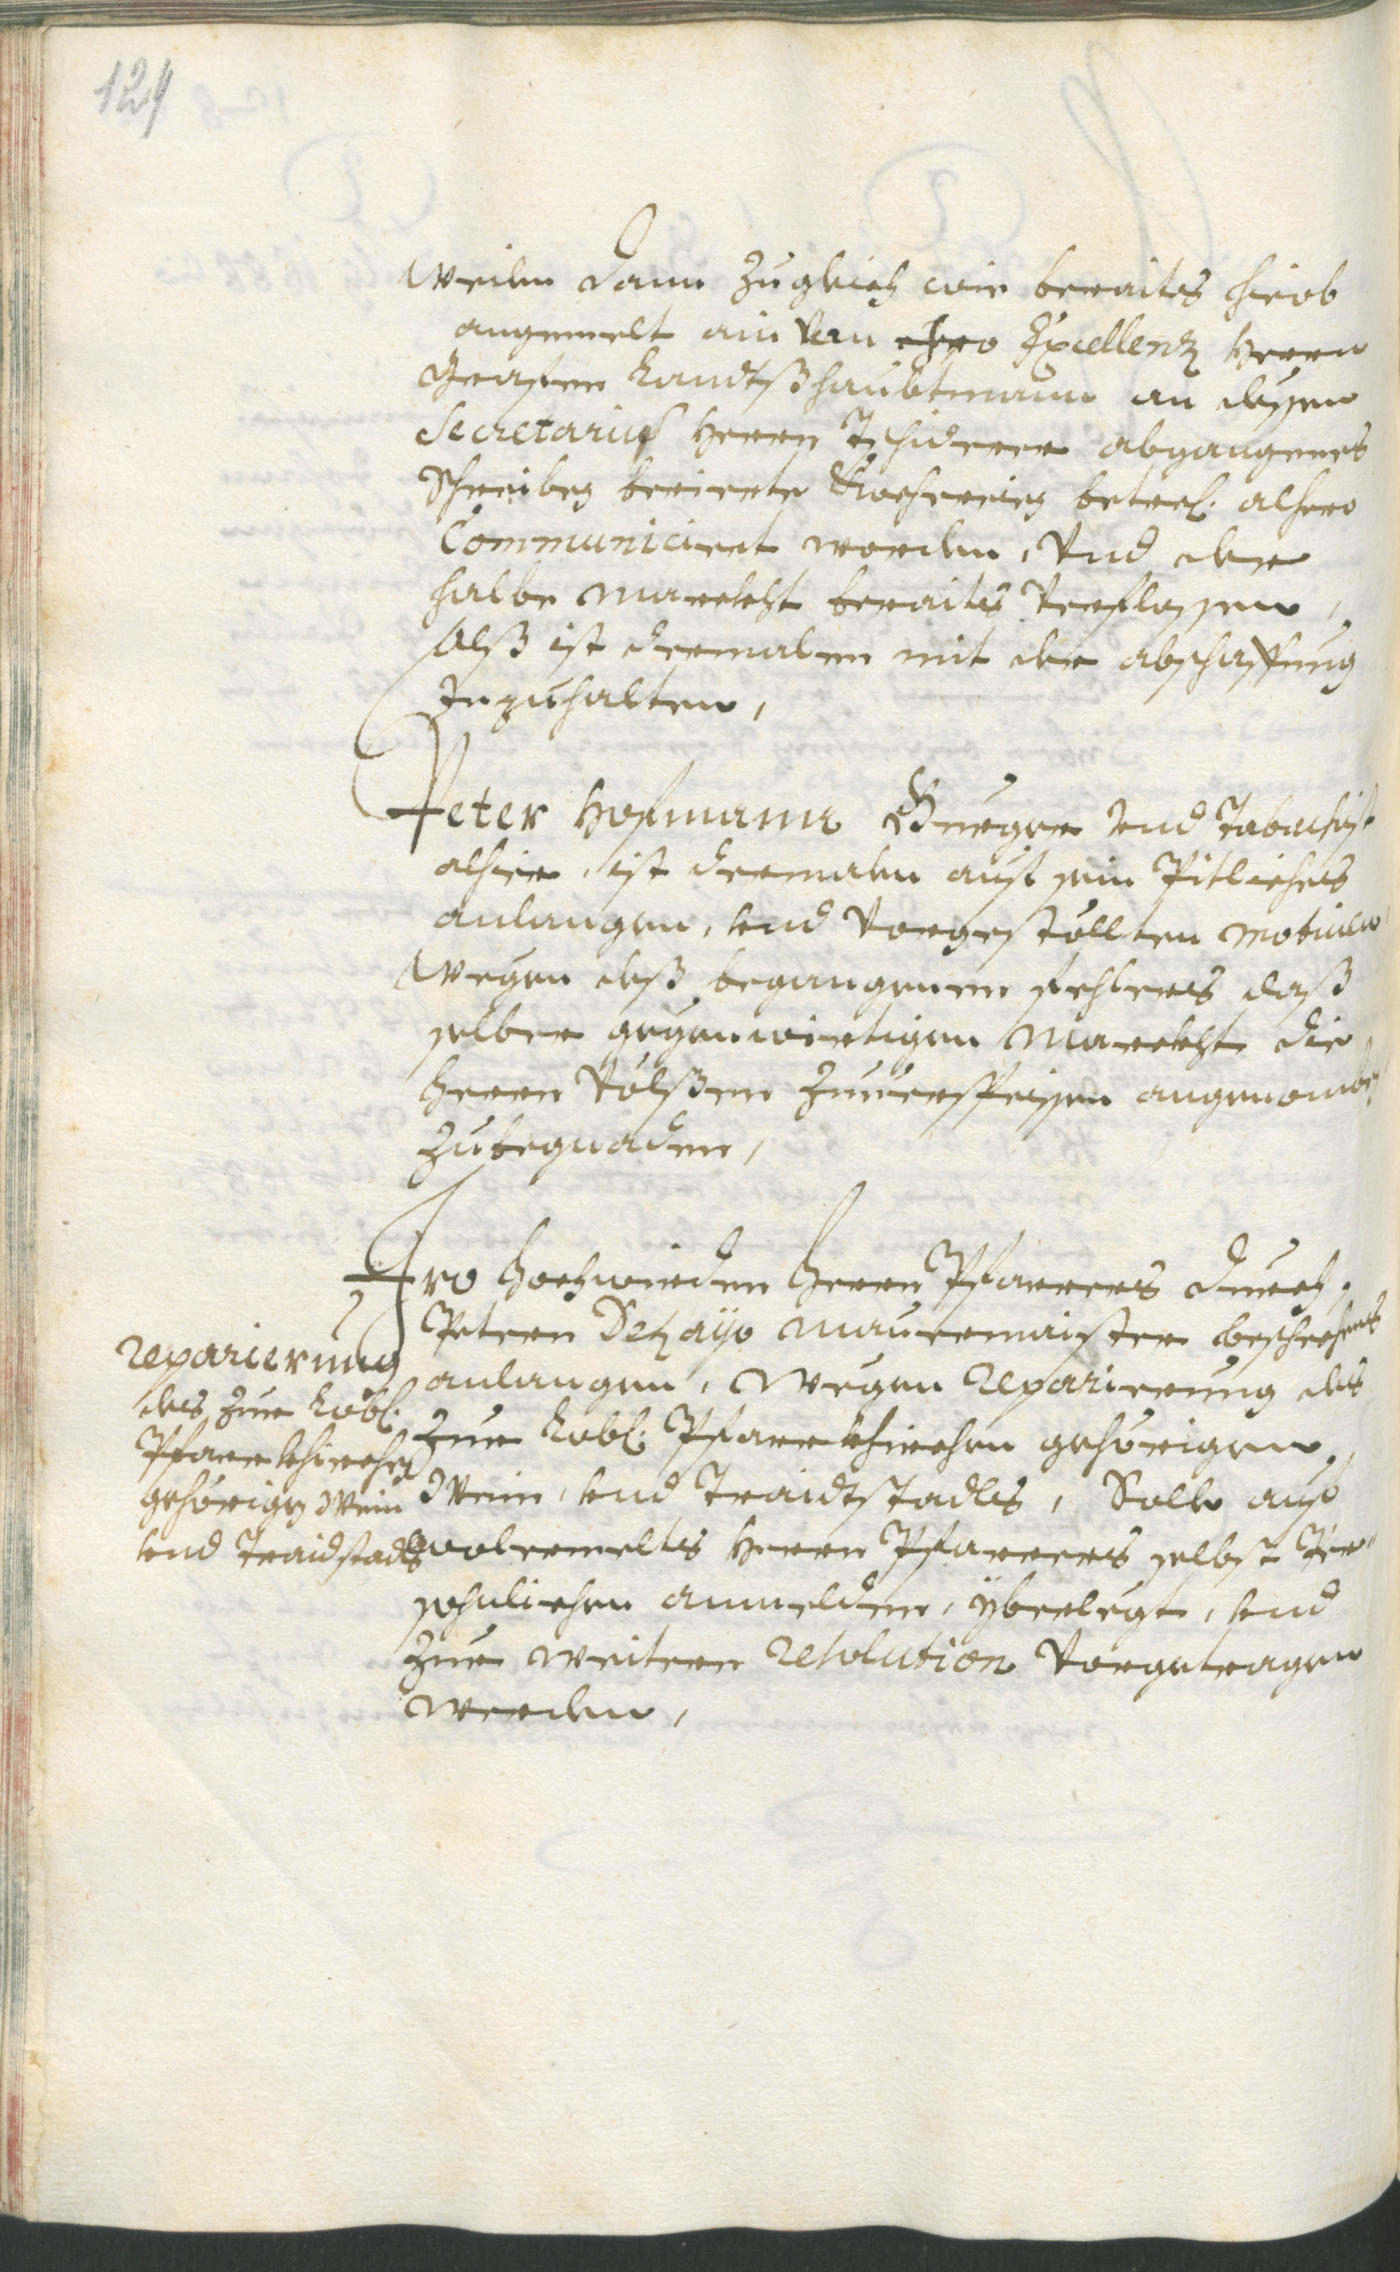 124
Weilen dann Zugleich wie beraits hieob
angemelt ain Von Ihro Excellenz Herrn
Grafen Landtßhaubtmann an dessen
Secretarius Herrn Tschiderer abgangenes
Schreiben berierte betref: alhero
Communiciert worden, Vnd der
halbe Marckht beraits Verflossen,
Alß ist dermalen mit der abschaffung
Inzuhalten,
Peter Hofmann Burger vnd Tabackhist
alhier, ist dermalen auf sein Pitliches
anlangen, vnd Vorgestölten motiven
Wegen deß begangenen fehlers daß
selber gegenwirtigen Marckht die
Herrn Zuuerspeisen angenomben
Zubegnaden,
Iro Hochwirden Herrn Pfarrers durch
Petern Delayo Maurermaister beschechnes
anlangen, Wegen reparierung des
Zur Lobl: Pfarrkhirchen gehörigen
Wein, vnd Traidtstadls, Solle auf
wolermelts Herrn Pfarrers selbst Per-
sohnlichen anmelden, yberlegt, vnd
Zur weitern resolution Vorgetragen
werden,
reparierung
des Zur Lobl:
Pfarrkhirchen
gehörigen Wein
vnd Traidstadls